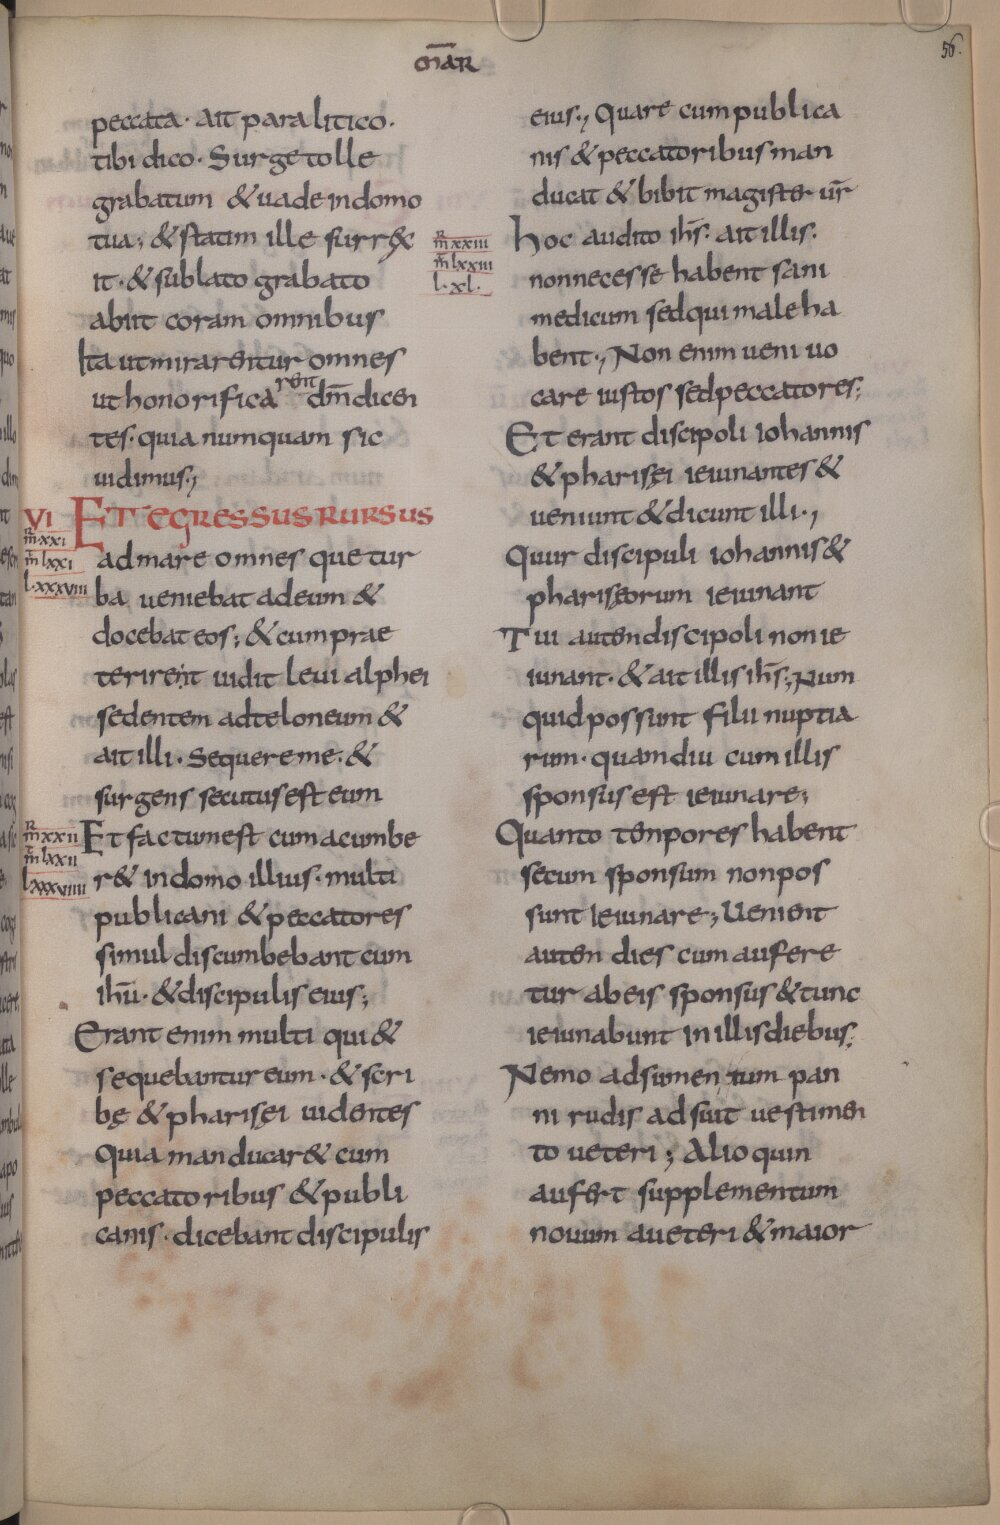 m̄ar
56.
peccata· ait paralitico·
tibi dico· Surge tolle
grabatum & uade indomo
tua; & statim ille surrex
it· & sublato grabato
abiit coram omnibus
Ita utmirarentur omnes
ut honorificarent dm̄ dicen
tes· quia numquam sic
uidimus.,
VI ET EGRESSUS RURSUS
m̄·xxi
m̄ lxxi
l·xxxviii
admare omnes que tur
ba ueniebat adeum &
docebat eos; & cum prae
terirent uidit leui alphei
sedentem adteloneum &
ait illi· Sequere me· &
surgens secutus est eum
m̄ xxii
m̄ lxxii
lxxxviiii
Et factum est cum acumbe
r& indomo illius· multi
publicani & peccatores
simul discumbebant cum
ihū· & discipulis eius;
Erant enim multi qui &
sequebantur eum· & scri
bę & pharisęi uidentes
Quia manducar& cum
peccatoribus & publi
canis· dicebant discipulis
eius., Quare cum publica
nis & peccatoribus man
ducat & bibit magister ur̄
m̄ xxiii
m̄ lxxiii
l·xl·
hoc audito ihs̄· ait illis·
non necesse habent sani
medicum sed qui male ha
bent., Non enim ueni uo
care iustos sed peccatores;
Et erant discipoli iohannis
& pharisęi ieiunantes &
ueniunt & dicunt illi.,
Quur discipuli iohannis &
pharisęorum ieiunant
Tui autem discipoli non ie
iunant· & ait illis ihs̄; Num
quid possunt filii nuptia
rum· quamdiu cum illis
sponsus est ieiunare;
Quanto tempores habent
secum sponsum non pos
sunt ieiunare; Uenient
autem dies cum aufere
tur ab eis sponsus & tunc
ieiunabunt in illis diebus;
Nemo adsumentum pan
ni rudis adsuit uestimen
to ueteri; Alioquin
aufert supplementum
nouum aueteri & maior